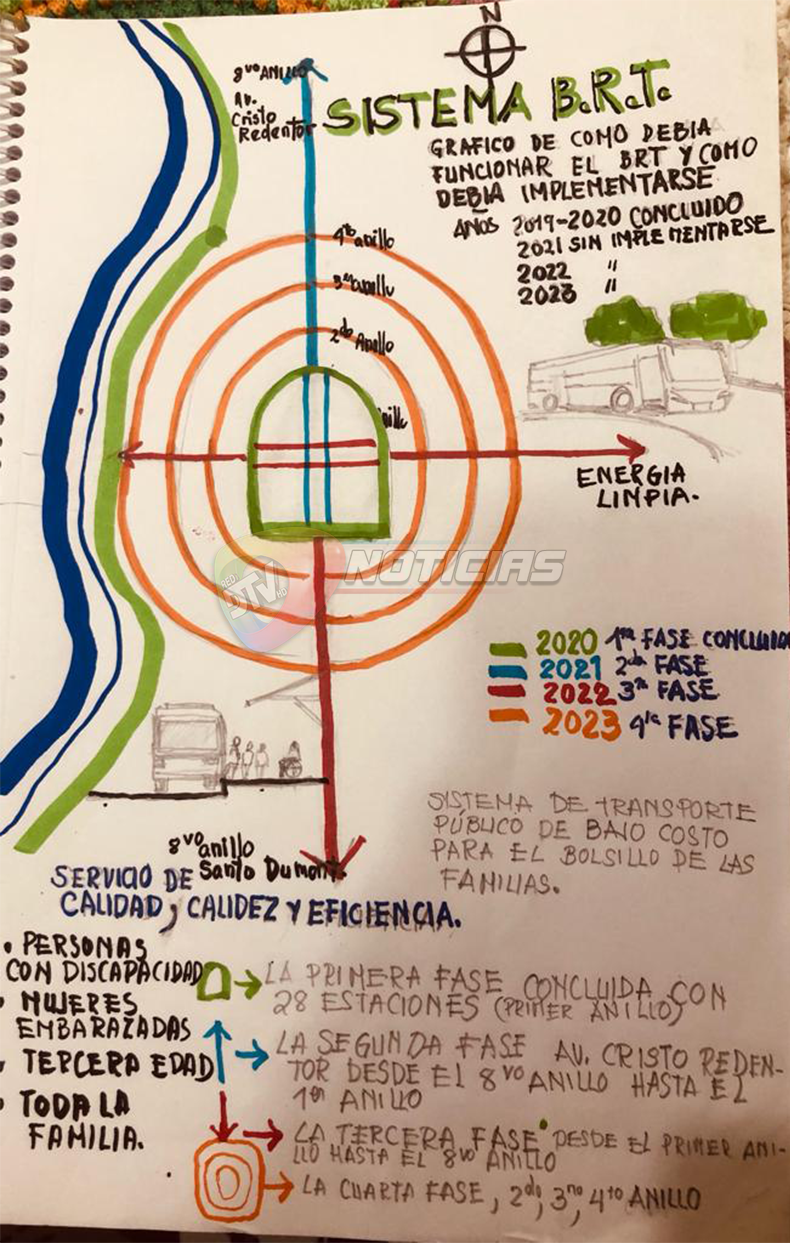 N
8vo ANILLO
AV.
Cristo
Redentor
SISTEMA B.R.T.
GRAFICO DE COMO DEBIA
FUNCIONAR EL BRT Y COMO
DEBIA IMPLEMENTARSE
AÑOS 2019-2020 CONCLUIDO
2021 SIN IMPLEMENTARSE
2022 "
2023 "
4to anillo
3er anillo
2do Anillo
ENERGIA
LINPIA.
RED DTV HD
NOTICIAS
2020 1ra FASE CONCLUIDA
2021 2da FASE
2022 3ra FASE
2023 4ta FASE
SISTEMA DE TRANSPORTE
PÚBLICO DE BAJO COSTO
PARA EL BOLSILLO DE LAS
FAMILIAS.
8vo anillo
Santo Dumont.
SERVICIO DE
CALIDAD, CALIDEZ Y EFICIENCIA.
• PERSONAS
CON DISCAPACIDAD
• MUJERES
EMBARAZADAS
• TERCERA EDAD
• TODA LA
FAMILIA.
LA PRIMERA FASE CONCLUIDA CON
28 ESTACIONES (PRIMER ANILLO)
LA SEGUNDA FASE AV. CRISTO REDEN-
TOR DESDE EL 8vo ANILLO HASTA EL
1er ANILLO
LA TERCERA FASE DESDE EL PRIMER ANI-
LLO HASTA EL 8vo ANILLO
LA CUARTA FASE, 2do, 3ro, 4to ANILLO